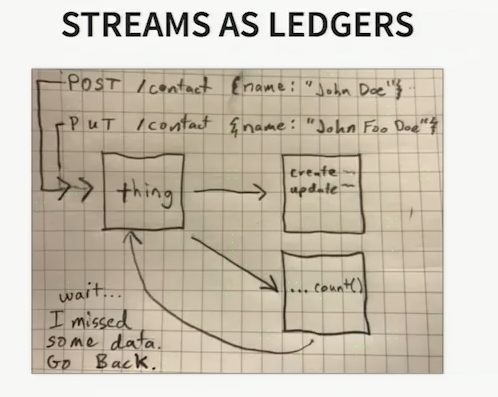 STREAMS AS LEDGERS
POST /contact {name: "John Doe"}
PUT /contact {name: "John Foo Doe"}
thing
create
update
... count()
wait...
I missed
some data.
Go Back.